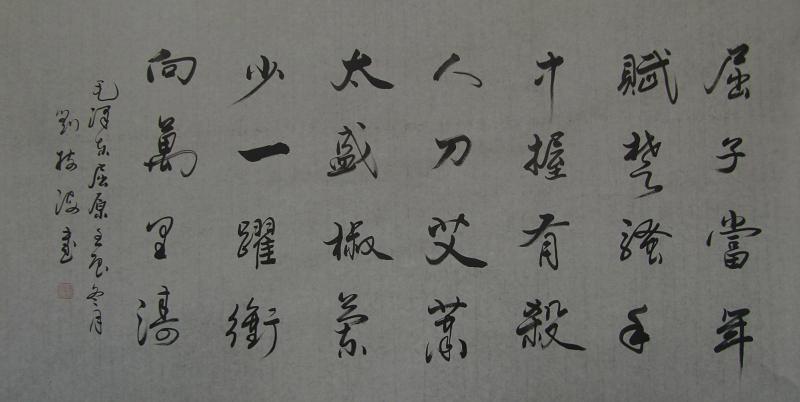 屈子當年
賦楚騷手
中握有殺
人刀艾蕭
太盛椒蘭
少一躍衝
向萬里濤
毛澤東屈原壬辰冬月
劉 波書